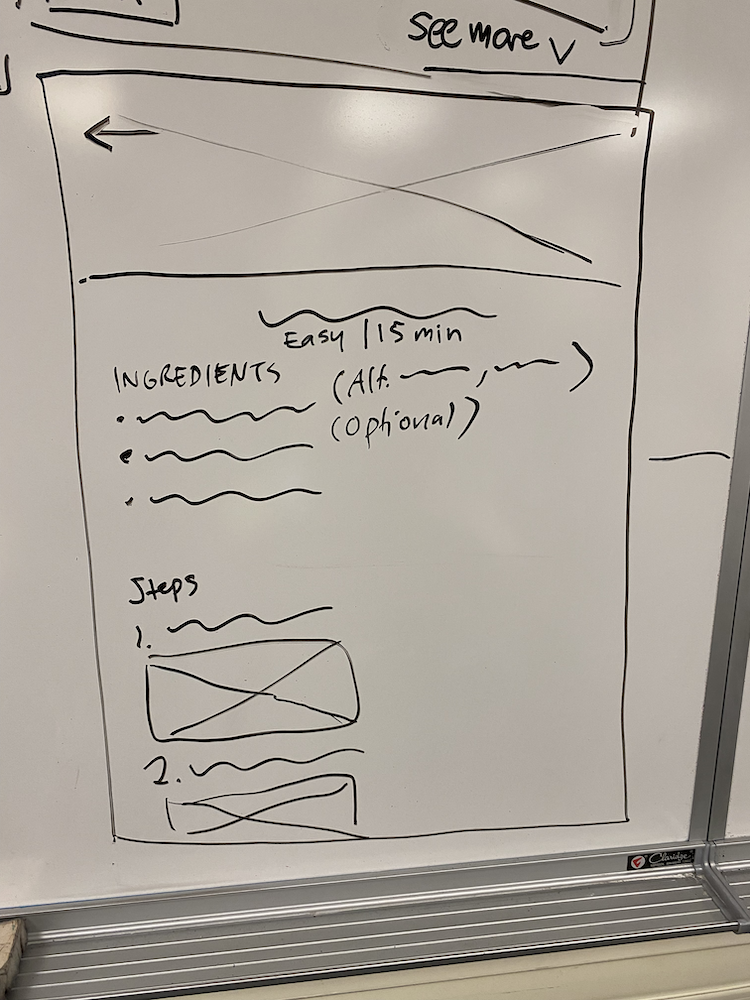 See more
Easy | 15 min
INGREDIENTS
(Alt. , )
(Optional)
Steps
1.
2.
Claridge